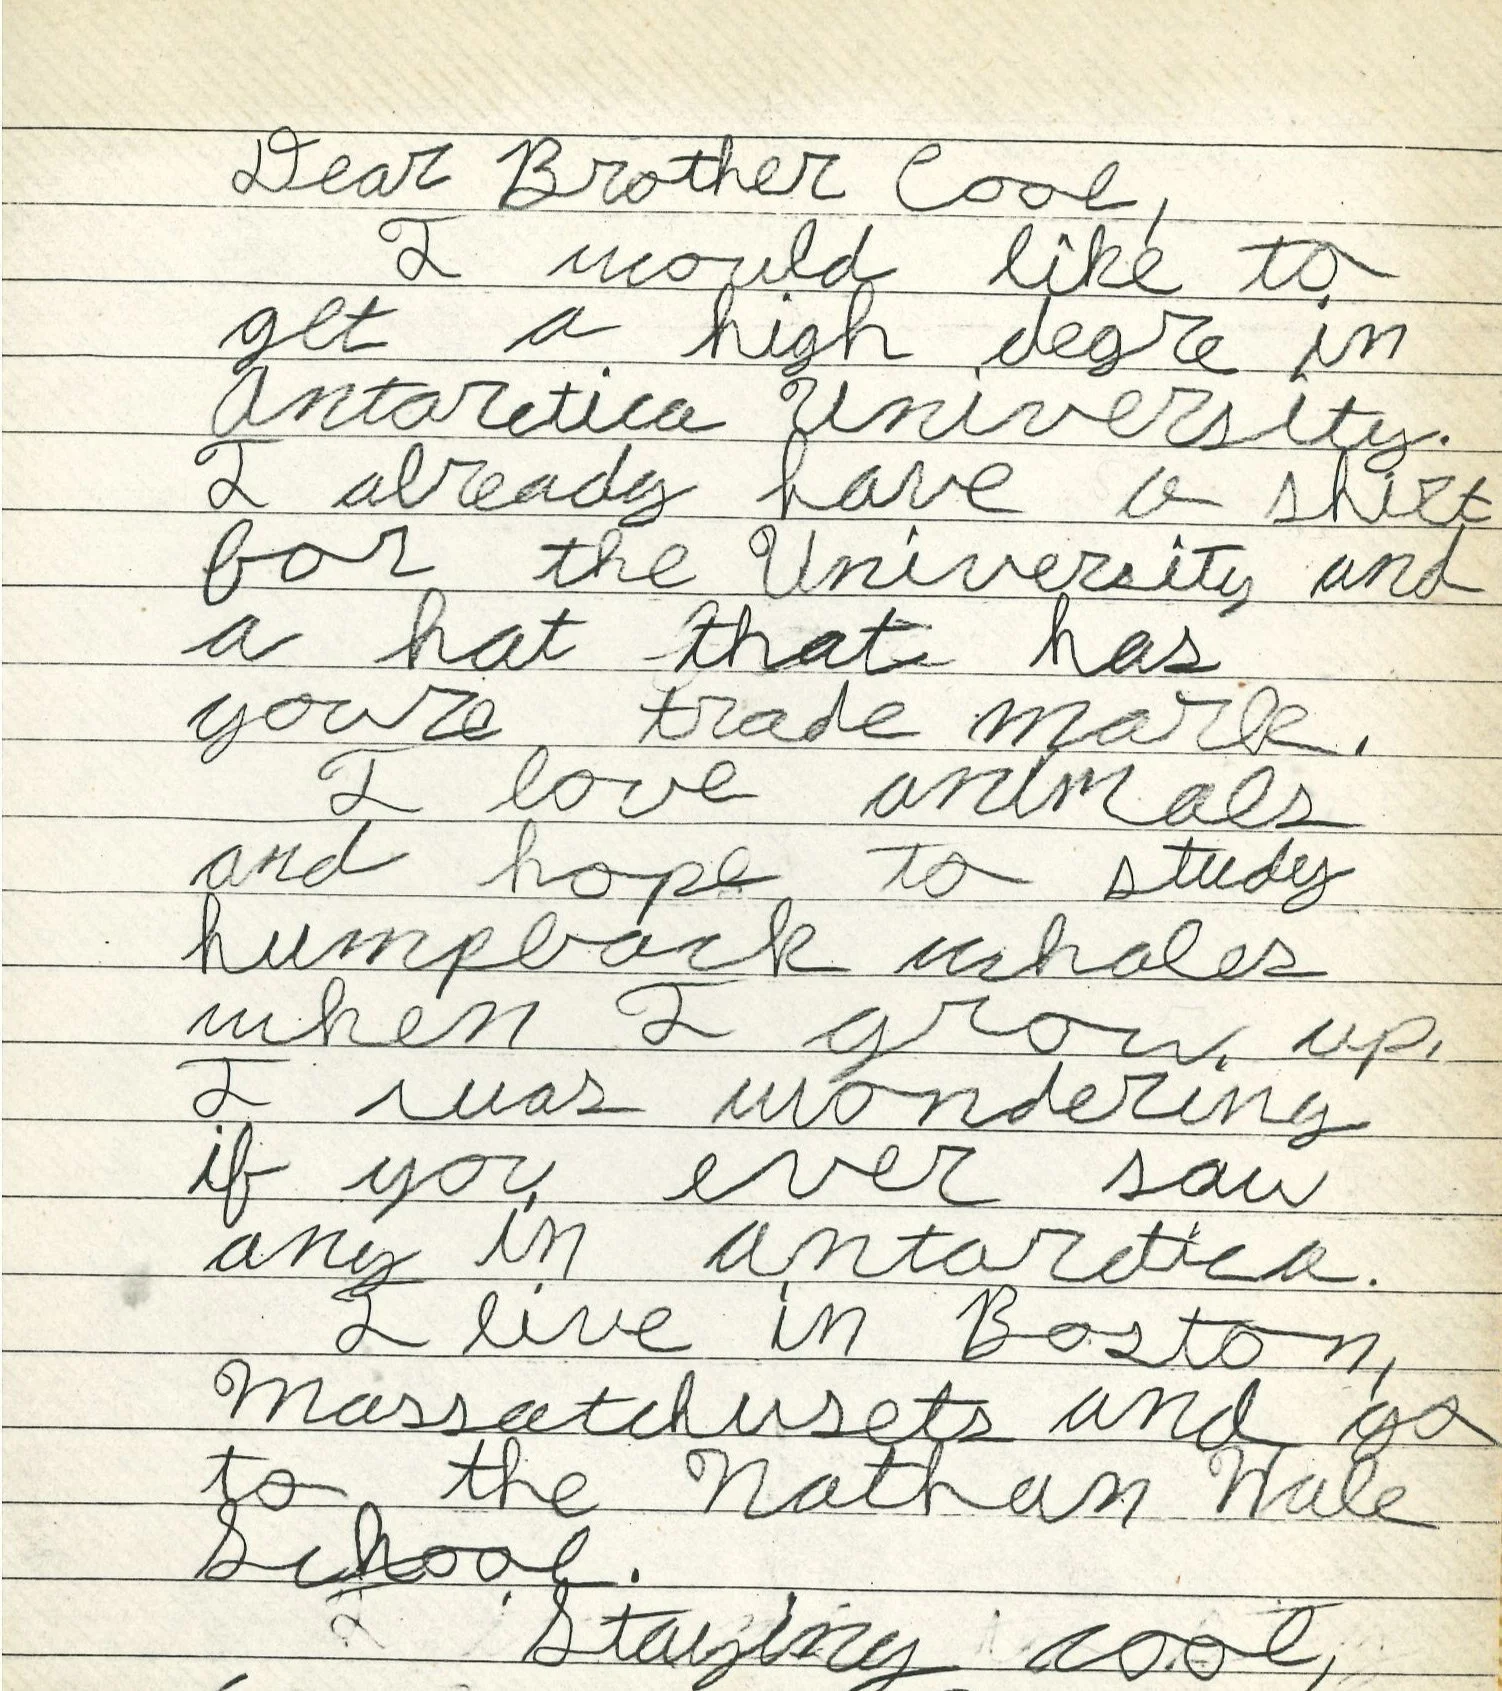 Dear Brother Cool,
I would like to
get a high degre in
Antarctica University.
I already have a shirt
for the University and
a hat that has
you're trade mark.
I love animals
and hope to study
humpback whales
when I grow up.
I was wondering
if you ever saw
any in antarctica.
I live in Boston,
Massatchusets and go
to the Nathan Hale
School.
Staying cool,